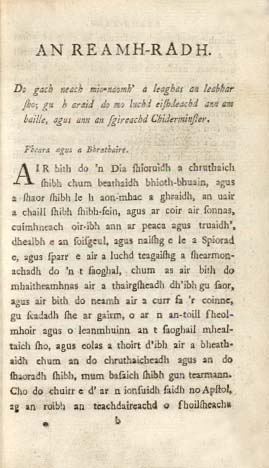 AN REAMH-RADH.
Do gach neach mio-naomh' a leaghas an leabhar
ſho; gu h araid do mo luchd eiſhdeachd ann am
baille, agus ann an ſgireachd Chiderminſter.
Fheara agus a Bhraithaire.
AIR bith do 'n Dia ſhioruidh a chruthaich
ſhibh chum beathaidh bhioth-bhuain, agus
a ſhaor ſhibh le h aon-mhac a ghraidh, an uair
a chaill ſhibh ſhibh-fein, agus ar coir air ſonnas,
cuimhneach oir-ibh ann ar peaca agus truaidh',
dhealbh e an ſoiſgeul, agus naiſhg e le a Spiorad
e, agus ſparr e air a luchd teagaiſhg a ſhearmon-
achadh do 'n t ſaoghal, chum as air bith do
mhaitheamhnas air a thairgſheadh dh'ibh gu ſaor,
agus air bith do neamh air a curr fa 'r coinne,
gu ſcadadh ſhe ar gairm, o ar n an-toill fheol-
mhoir agus o leanmhuinn an t ſaoghail mheal-
taich ſho, agus eolas a thoirt d'ibh air a bheath-
aidh chum an do chruthaicheadh agus an do
ſhaoradh ſhibh, mum baſaich ſhibh gun tearmann.
Cho do chuirr e d' ar n ionſuidh faidh no Apſtol,
ag an roibh an teachdaireachd o fhoilſheachu
b